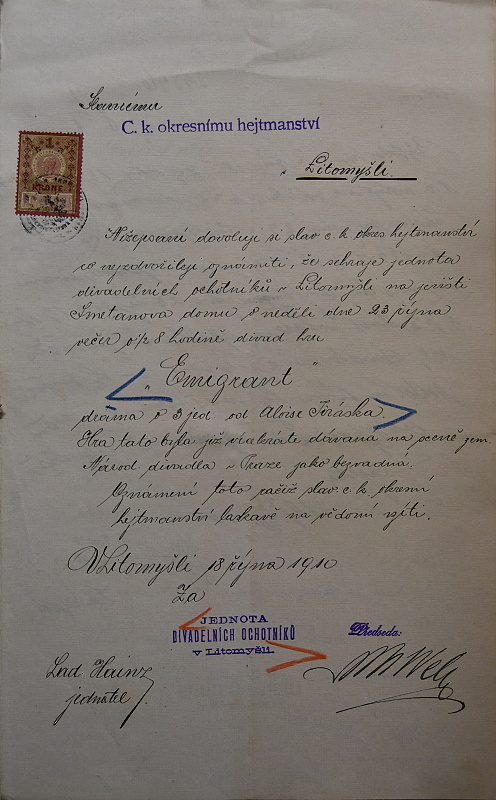 Slavnému
C. k. okresnímu hejtmanství
v Litomyšli.
1
KRONE
Nížepsaní dovolují si slav c. k. okres hejtmanství
co nejzdvořileji oznámiti, že sehraje jednota
divadelních ochotníků v Litomyšli na jevišti
Smetanova domu v neděli dne 23 října
večer o ½ 8 hodině divad hru
"Emigrant"
drama o 3 jed od Aloise Jiráska.
Hra tato byla již vícekráte dávána na scéně zem
Národ divadla v Praze jako bezvadná.
Oznámení toto račiž slav. c. k. okresní
hejtmanství laskavě na vědomí vzíti.
V Litomyšli 18 října 1910
Za
JEDNOTA
DIVADELNÍCH OCHOTNÍKŮ
v Litomyšli.
Předseda:
Lad. Hainz
jednatel